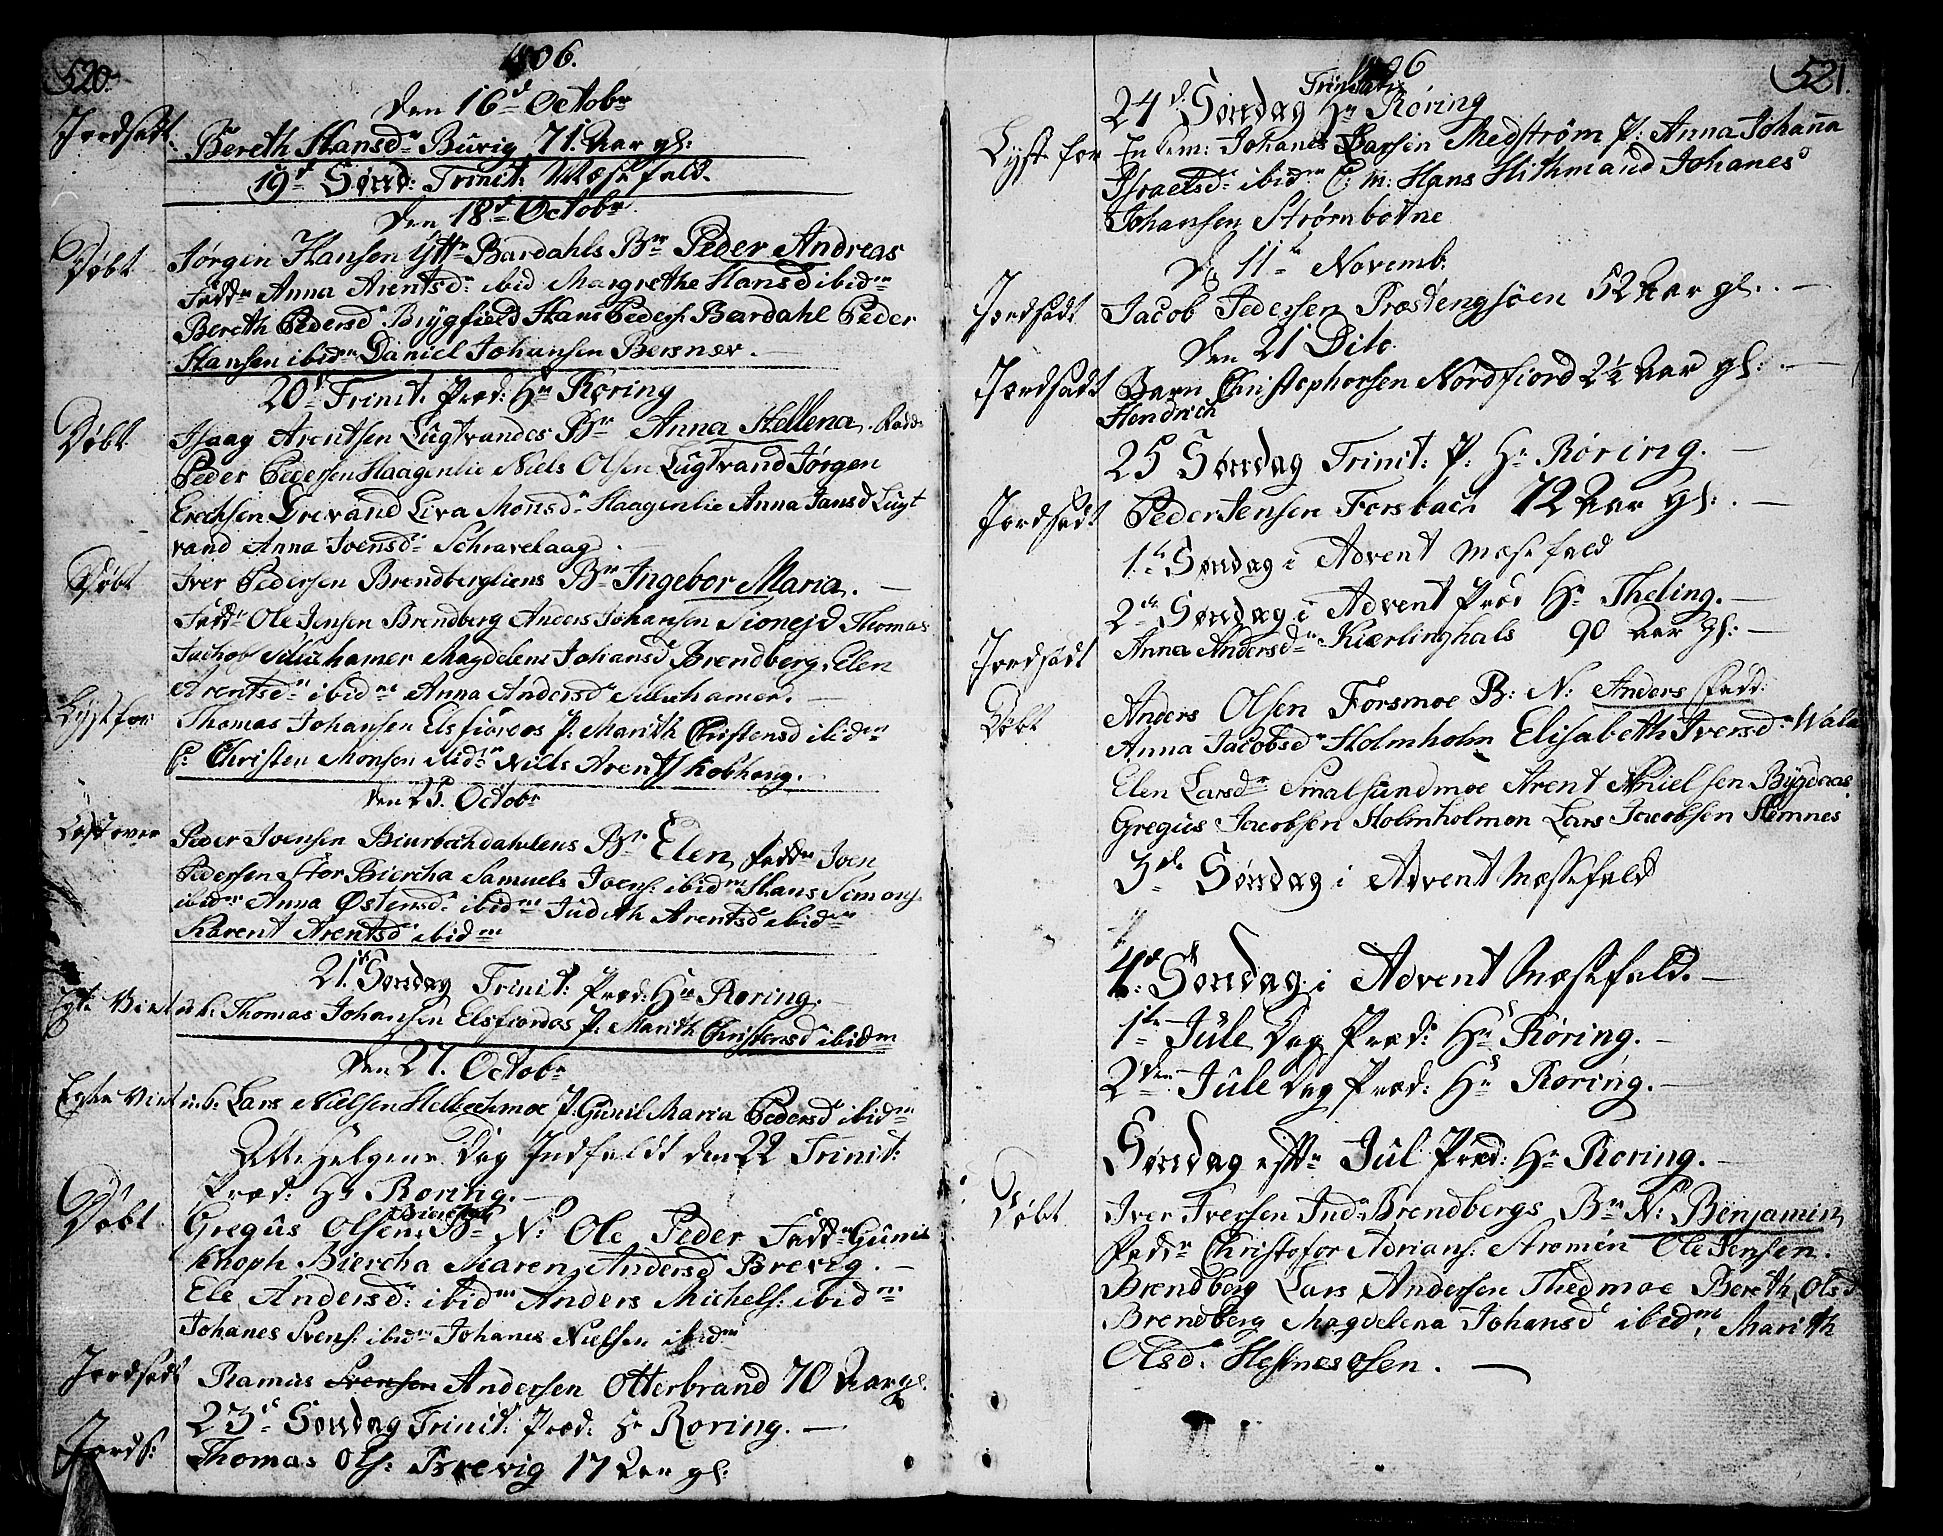 520.
1806.
Den 16de Octobr
Jordsatt. Bereth Hansdr Buvig 71 Aar gl:
19de Sønd: Trinit: Mæsefald.
Den 18de Octobr
Døbt Jørgin Hansen Yttr Bardahls Bn Peder Andreas
Faddr Anna Arentsdr ibid Margrethe Hansd ibidm
Bereth Pedersdr Brygfield Hans Peders: Bardahl Peder
Hansen ibidm Daniel Johansen Bersner.
20de Trinit. Præd: Hr Roring
Døbt Isaag Arentsen Lugtvandes Bn Anna Hellena. Fadd:
Peder Pedersen Haagenlie Niels Olsen Lugtvand Jørgen
Erechsen Drevand Liva Monsdr Haagenlie Anna Jansd Lugt
vand Anna Joensdr Schravelaag
Døbt Iver Pedersen Brendbergliens Bn Ingebor Maria.
Faddr Ole Jensen Brendberg Anders Johansen Sionejd Thomas
Jachob Silichamer Magdelena Johansd Brendberg. Elen
Arentsdr ibidm Anna Andersdr Silichamer.
Lyst for Thomas Johansen Elsfiordos P. Marith Christensd ibidm
C: Christen Monsen ibidm Niels Arents Kobhoug.
Den 25. Octobr
Peder Joensen Biurbachdahlens Bn Elen Faddr Joen
Pedersen Stor Biercha Samuels Joens: ibidm Hans Simons
ibidm Anna Østensdr ibidm Judith Arentsdr ibidm
Karent Arentsdr ibidm
21de Søndag Trinit: Præd: Hr Roring.
Egte Viet u.k. Thomas Johansen Elsfiordos P. Marith Christensd ibidm
Den 27. Octobr
Egte Viet Lars Nielsen Hellechmoe P. Gunil Maria Pedersd ibidm
Alle Helgens Dag Indfaldt den 22 Trinit:
Præd: Hr Roring.
Biercha
Døbt Gregus Olsen Bn N: Ole Peder Faddr Gunil
Knoph Biercha Maren Andersd Brevig.
Ele Andersdr ibidm Anders Michels: ibidm
Johanes Svens: ibidm Johanes Nielsen ibidm
Jordsadt Ramus Svensen Andersen Otterbrand 70 Aar gl.
23de Søndag Trinit: Præd: Hr Roring.
Jords: Thomas Ols: Brevig 17 Aar gl:
521.
1806
Trinitatis
24de Søndag Hr Røring
Lyst for Johanes Larsen Medstrøm P: Anna Johana
Israelsdr ibidm C: m: Hans Hithmand Johanes
Johansen Strømbotne
D 11te Novemb:
Jordsadt Jacob Pedersen Præstengsøen 52 Aar gl.
Den 21 Dito
Jordsadt Barn Christophersen Nordfiord 2½ Aar gl:
Hendrich
25 Søndag Trinit: P: Hr Roring.
Jordsadt Peder Jensen Forsbach 72 Aar gl:
1te Søndag i Advent Mæsefald
2den Søndag i Advent Præd Hr Theling.
Jordsadt Anna Andersdr Kierlinghals 90 Aar gl:
Døbt Anders Olsen Forsmoe B: N: Anders Fadd:
Anna Jacobsdr Holmholm Elisabeth Iversdr Wala
Elen Larsdr Smalsundmoe Arent Nielsen Bygdaas
Gregus Jacobsen Holmholmen Lars Jacobsen Hemnes
3de Søndag i Advent Mæssefald
4de Søndag i Advent Mæsefald.
1te Jule Dag Præd: Hr Røring.
2den Jule Dag Præd: Hr Roring.
Søndag eftr Jul Præd: Hr Roring.
Døbt Iver Iversen Indr Brendbergs Bn N: Benjamin
Faddr Christofor Adrians: Strømen Ole Jensen.
Brendberg Lars Andersen Thedmoe Bereth Olsd
Brendberg Magdelena Johansd ibidm, Marith
Olsdr Hesnesosen.